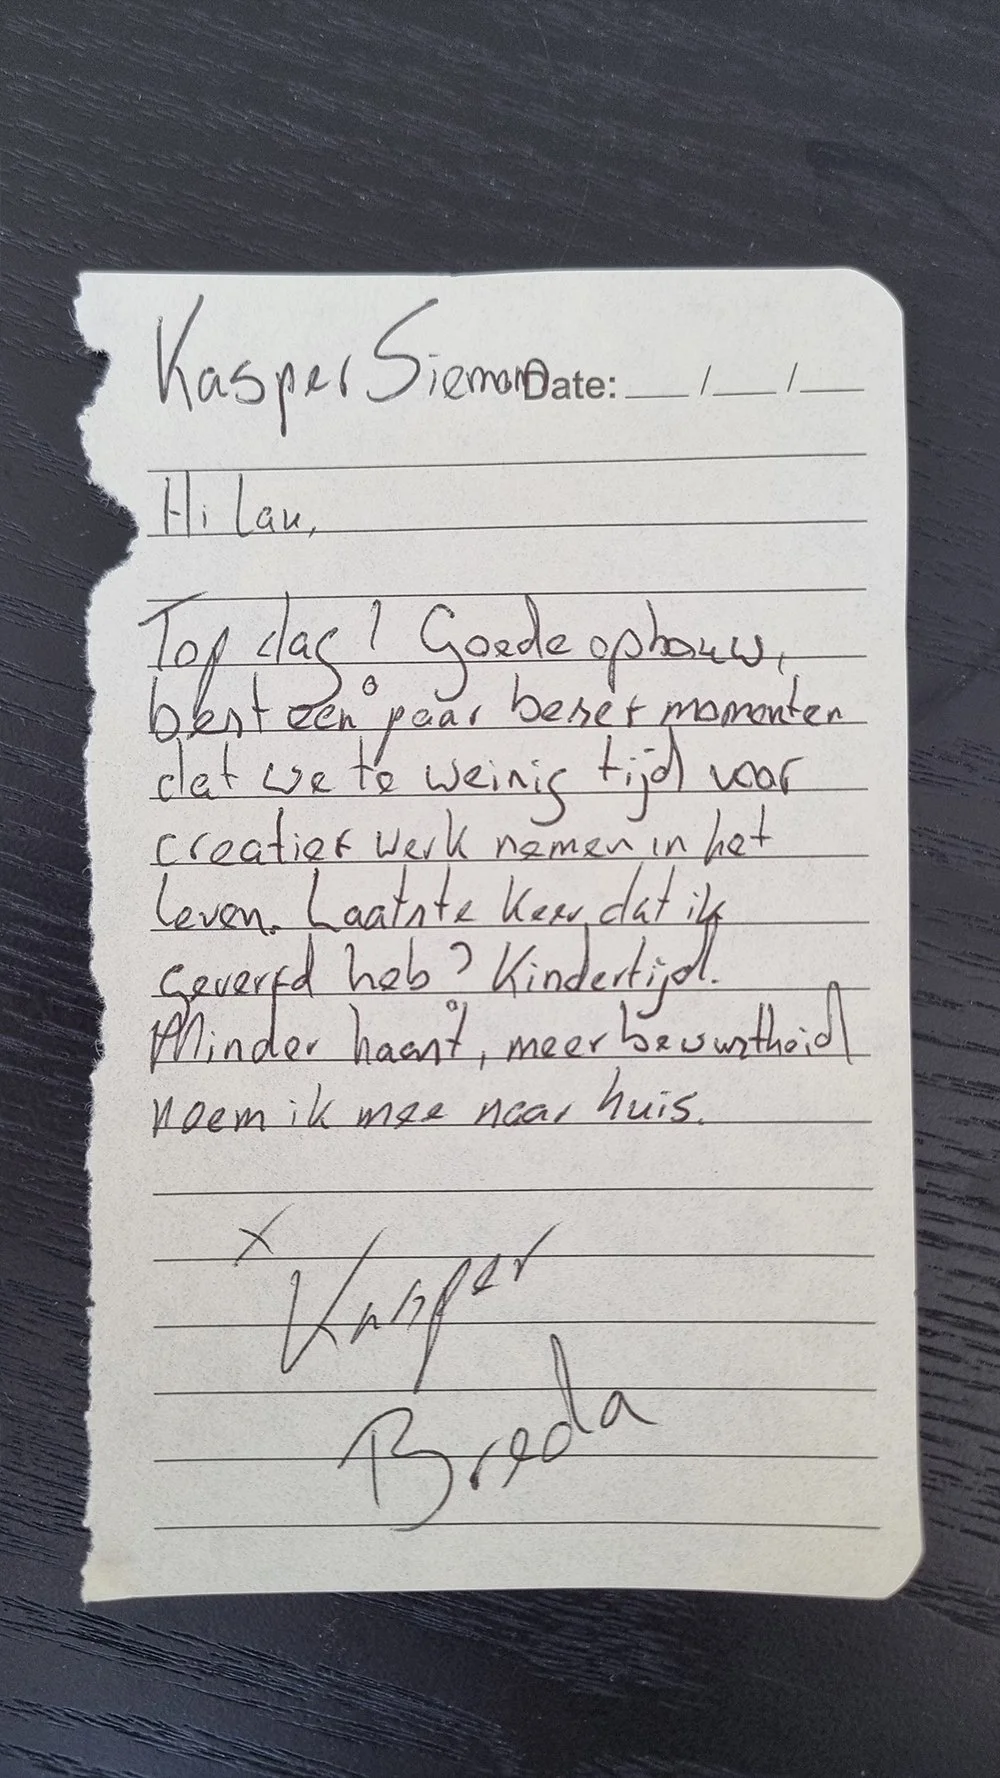 Kasper Siemon Date: __/__/__
Hi Lau,
Top dag! Goede opbouw,
best een paar besef momenten
dat we te weinig tijd voor
creatief werk nemen in het
leven. Laatste keer dat ik
geverfd heb? Kindertijd.
Minder haast, meer bewustheid
neem ik mee naar huis.
x
Kasper
Breda